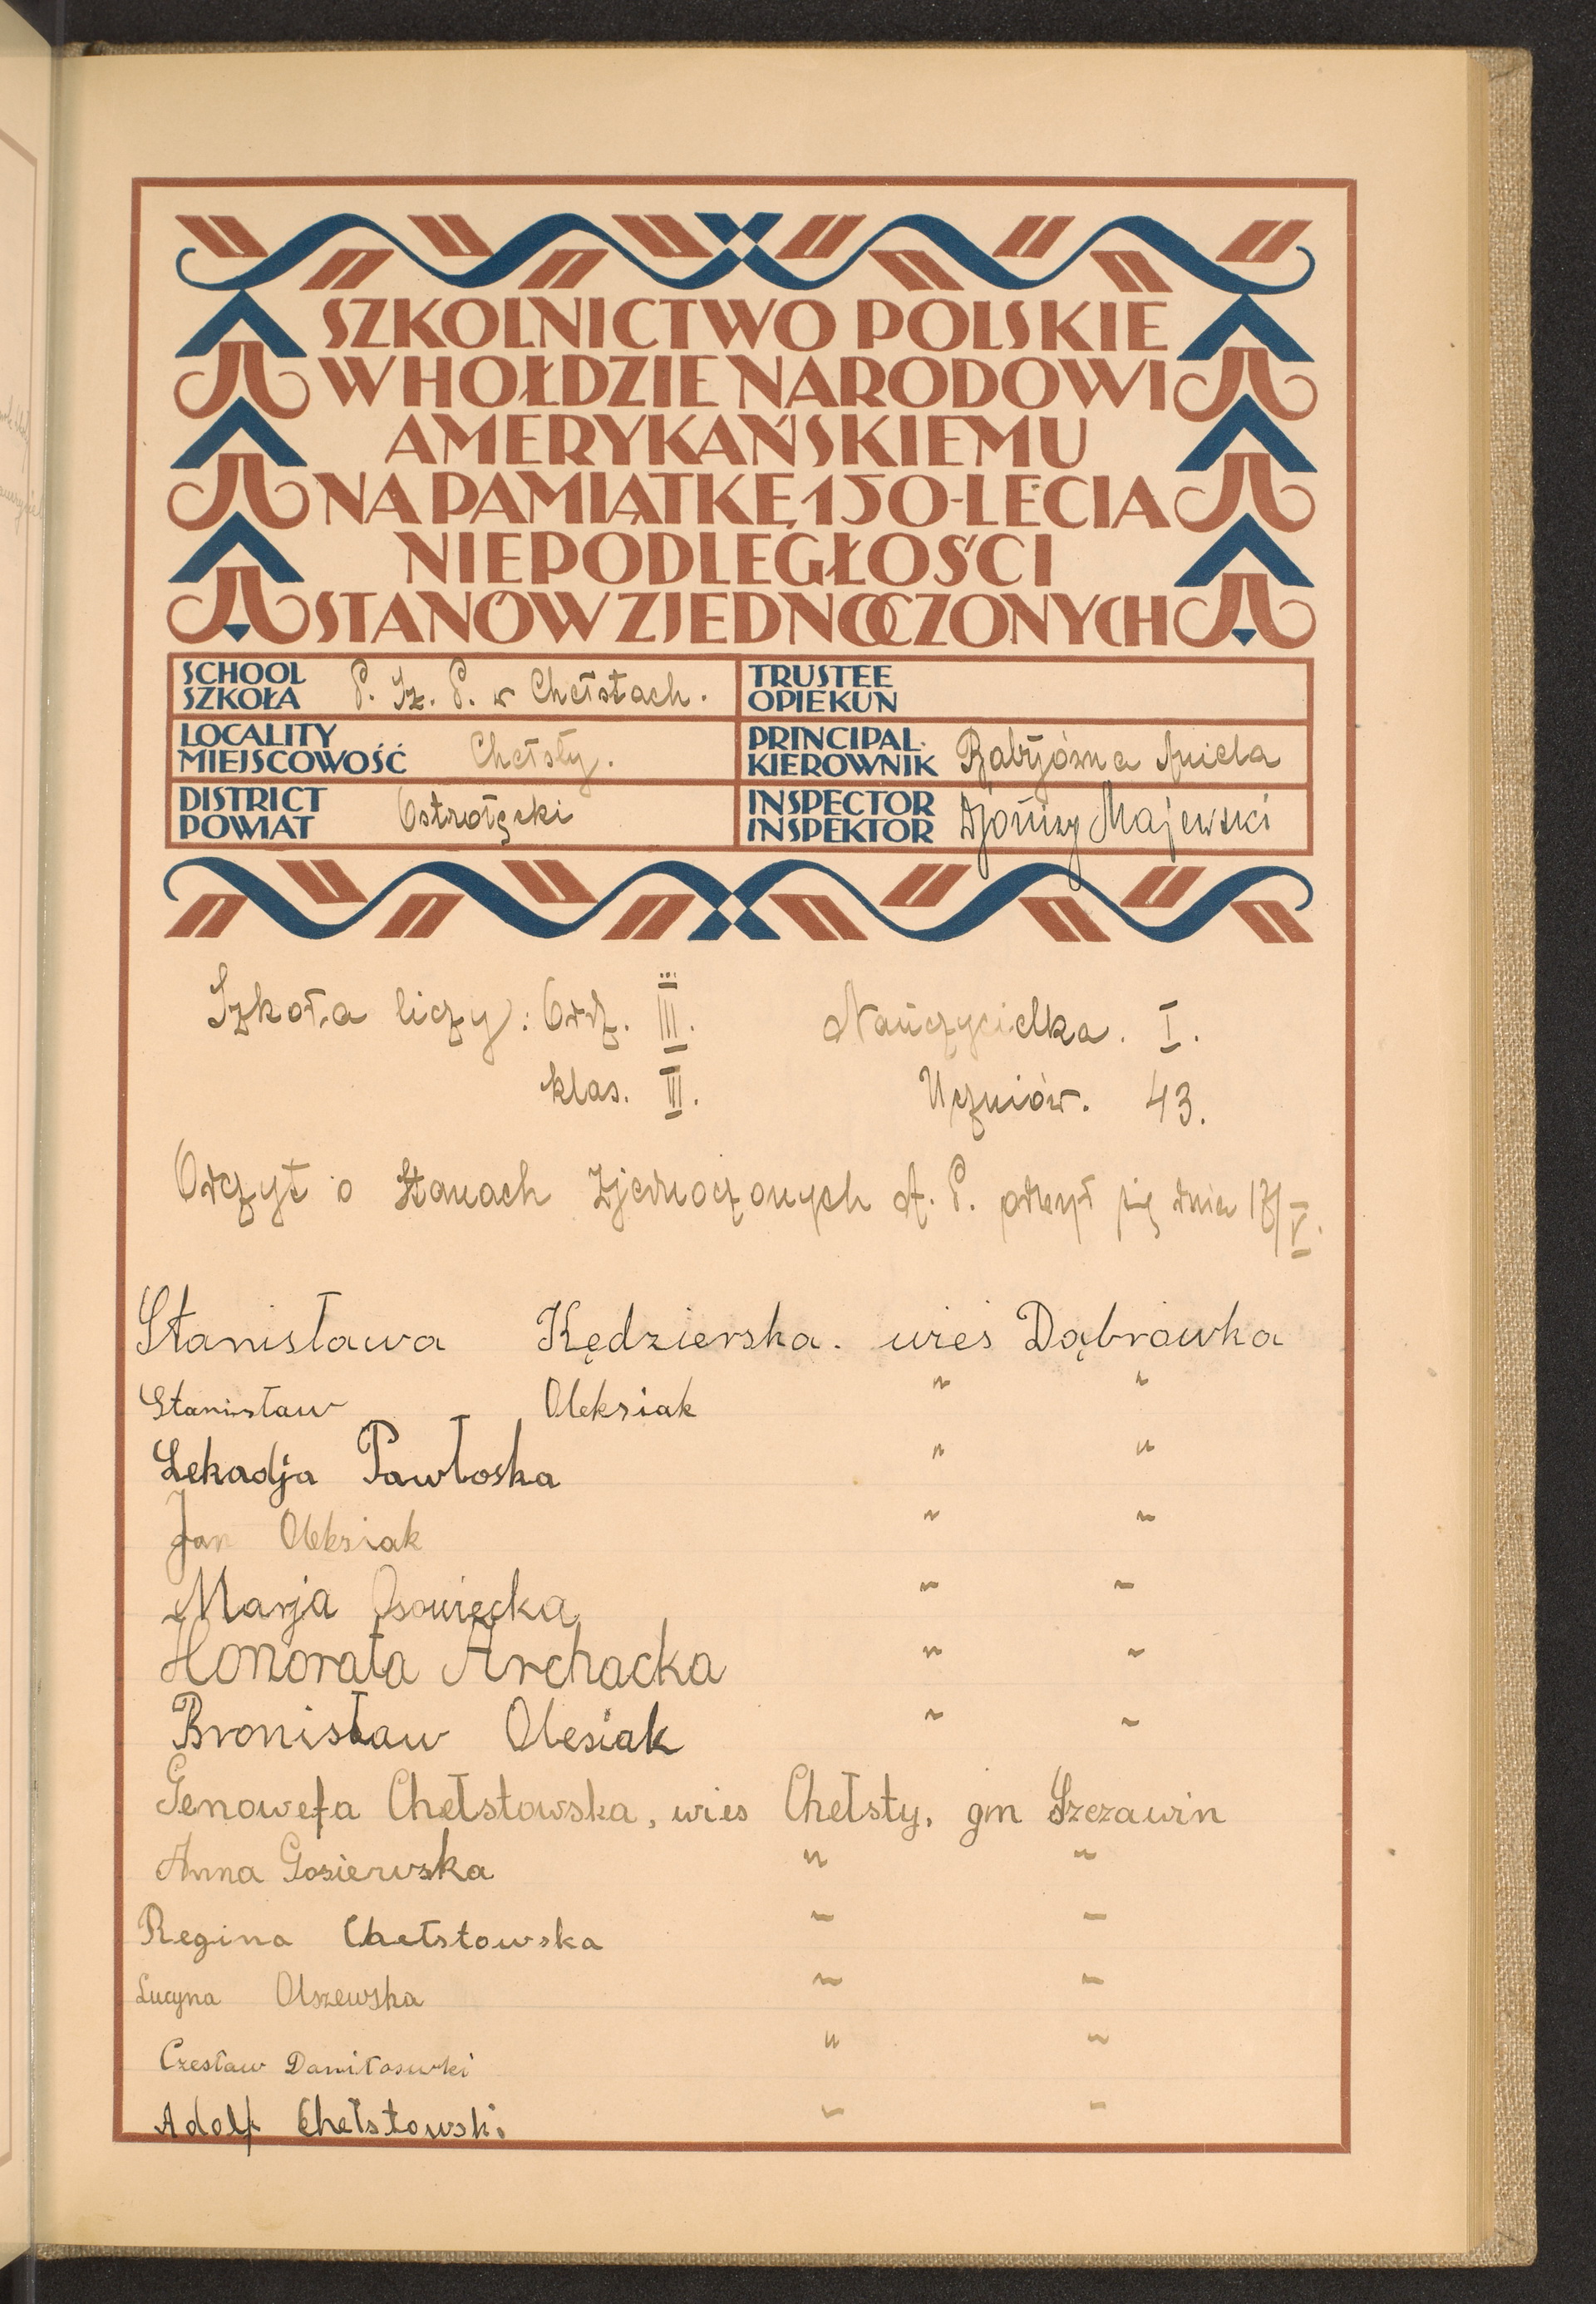 SZKOLNICTWO POLSKIE
W HOŁDZIE NARODOWI
AMERYKAŃSKIEMU
NA PAMIĄTKĘ 150-LECIA
NIEPODLEGŁOŚCI
STANÓW ZJEDNOCZONYCH
SCHOOL
SZKOŁA P. Sz. P. w Chełstach.
TRUSTEE
OPIEKUN
LOCALITY
MIEJSCOWOŚĆ Chełsty.
PRINCIPAL
KIEROWNIK Aniela
DISTRICT
POWIAT Ostrołęcki
INSPECTOR
INSPEKTOR Majewski
Szkoła liczy: Odz. III. Nauczycielka. I.
klas. III. Uczniów. 43.
Odczyt o Stanach Zjednoczonych A. P. odbył się dnia 17/V.
Stanisława Kędzierska. wieś Dąbrówka
Stanisław Oleksiak " "
Lekadja Pawłoska " "
Jan Oleksiak " "
Marja Osowiecka " "
Honorata Archacka " "
Bronisław Olesiak " "
Genowefa Chełstowska, wies Chełsty, gm Szczawin
Anna Gosiewska " "
Regina Chełstowska " "
Lucyna Olszewska " "
Czesław Daniłoswki " "
Adolf Chełstowski. " "